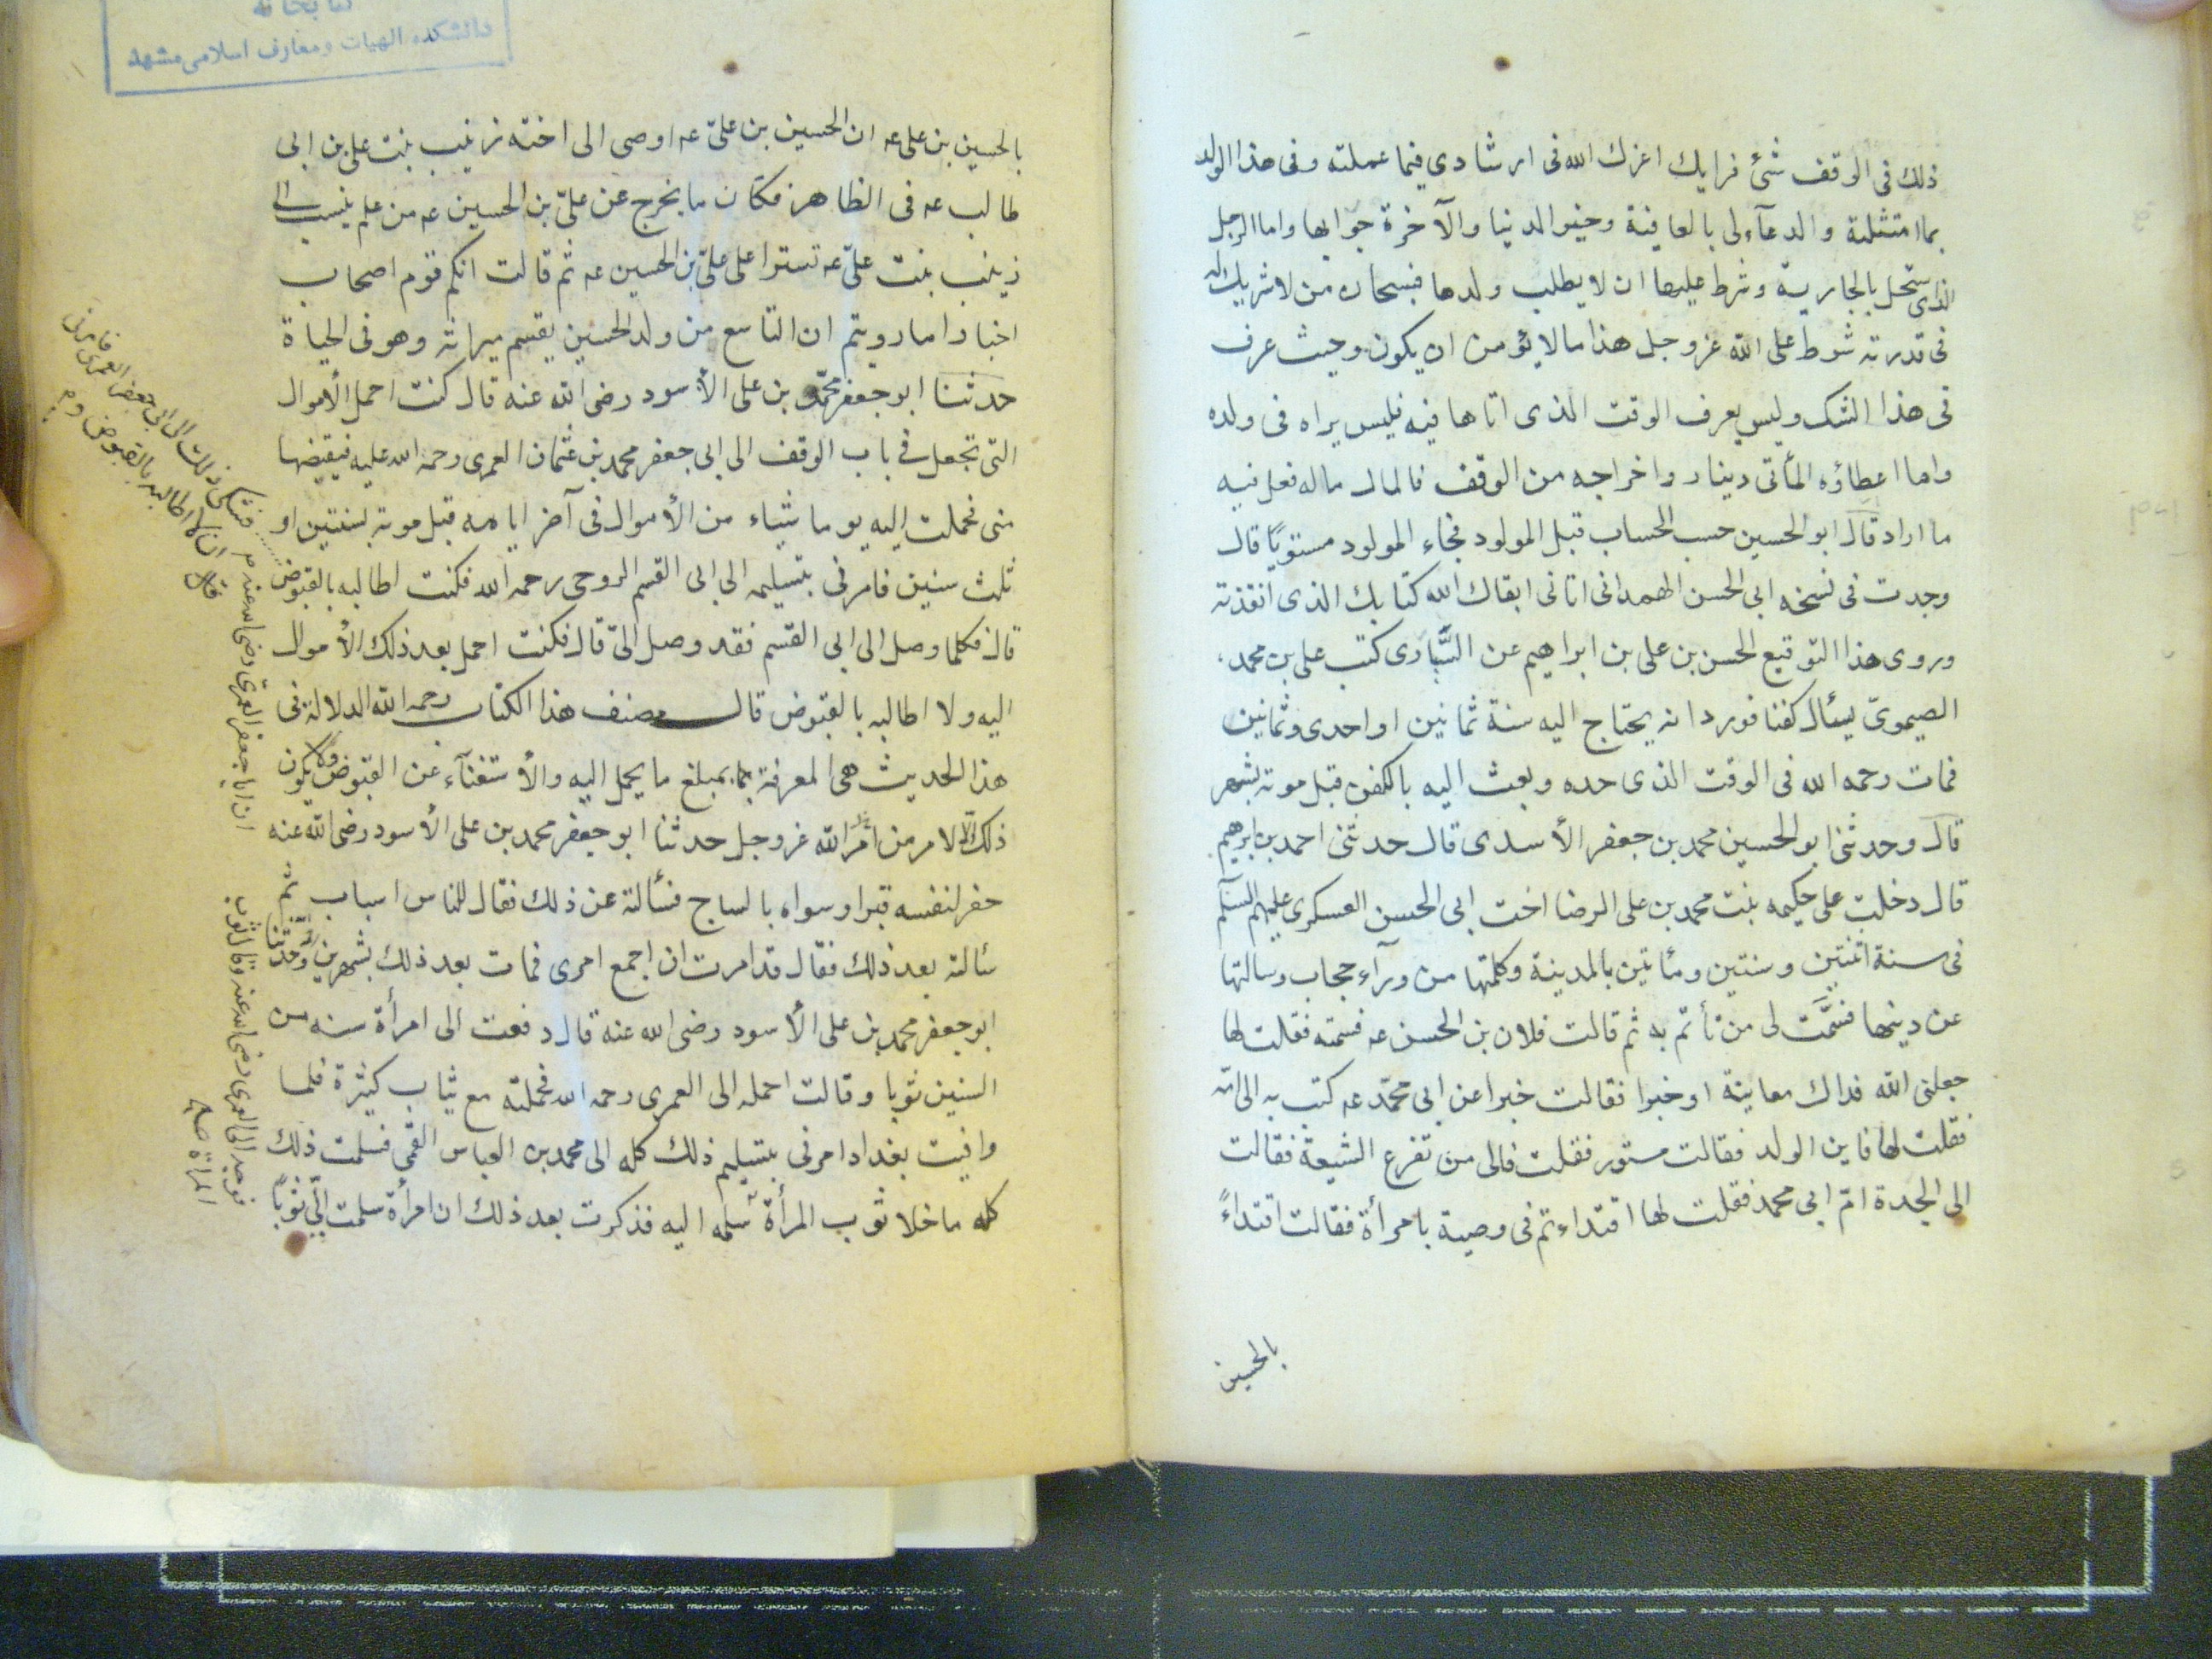 ذلك فى الوقف شئ فرايك اعزك الله فى ارشادي فيما عملته وفى هذا الولد
بما امتثلته والدعآء لى بالعافية وخير الدنيا والآخرة جوابها واما الرجل
الذى ستحل بالجارية وشرط عليها ان لا يطلب ولدها فسبحان من لا شريك له
فى قدرته شرط على الله عزوجل هذا ما لا يؤمن ان يكون وحيث عرف
فى هذا الشك وليس يعرف الوقت الذى اتاها فيه فليس يراه فى ولده
واما اعطاؤه المأتى دينار واخراجه من الوقف فالمال ماله فعل فيه
ما اراد قال ابو الحسين حسب الحساب قبل المولود فجاء المولود مستويًا قال
وجدت فى نسخه ابى الحسن الهمدانى اتانى ابقاك الله كتابك الذى انفذته
وروى هذا التوقيع الحسن بن على بن ابراهيم عن السَّيارى كتب على بن محمد
الصيمرىّ يسأل كفنا فورد انه يحتاج اليه سنة ثمانين او احدى وثمانين
فمات رحمه الله فى الوقت الذى حده وبعث اليه بالكفن قبل موته بشهر
قال وحدثنى ابو الحسين محمد بن جعفر الأسدى قال حدثنى احمد بن ابرهيم
قال دخلت على حكيمه بنت محمد بن على الرضا اخت ابى الحسن العسكرى عليهم السلم
فى سنة اثنتين وستين ومئاتين بالمدينة وكلمتها من ورآء حجاب وسالتها
عن دينها فسمَّت لى من تأتم به ثم قالت فلان بن الحسن عه فسمته فقلت لها
جعلنى الله فداك معاينة او خبرا فقالت خبرا عن ابى محمّد عه كتب به الى امّه
فقلت لها فاين الولد فقالت مستور فقلت فالى من تفزع الشيعة فقالت
الى الجدة امّ ابى محمد فقلت لها اقتداءتم فى وصية بامرأة فقالت اقتداءً
بالحسين
كتابخانه
دانشكده الهيات ومعارف اسلامى مشهد
بالحسين بن على عه ان الحسين بن علىّ عه اوصى الى اخته زينب بنت على بن ابى
طالب عه فى الظاهر فكان ما يخرج عن علىّ بن الحسين عه من علم ينسب الى
زينب بنت علىّ عه تسترا على علىّ بن الحسين عه ثم قالت انكم قوم اصحاب
اخبار اما رويتم ان التاسع من ولد الحسين يقسم ميراثه وهو فى الحياة
حدثنا ابو جعفر محمّد بن على الأسود رضى الله عنه قال كنت احمل الأموال
التى تجعل فى باب الوقف الى ابى جعفر محمد بن عثمان العمرى رحمه الله عليه فيقبضها
منى فحملت اليه يوما شياء من الأموال فى آخر ايامه قبل موته بسنتين او
ثلث سنين فامرنى بتسليمه الى ابى القسم الروحى رحمه الله فكنت اطالبه بالقبوض
قال فكلما وصل الى ابى القسم فقد وصل الىّ قال فكنت احمل بعد ذلك الأموال
اليه ولا اطالبه بالقبوض قال مصنف هذا الكتاب رحمه الله الدلالة فى
هذا الحديث هى المعرفة بما بمبلغ ما يحمل اليه والأستغنآء عن القبوض ولا يكون
ذلك الا لامر من امر الله عزوجل حدثنا ابو جعفر محمد بن على الأسود رضى الله عنه
حفر لنفسه قبرا وسواه بالساج فسألته عن ذلك فقال للناس اسباب ثم
سئالته بعد ذلك فقال قد امرت ان اجمع امرى فمات بعد ذلك بشهرين وحدثنا
ابو جعفر محمد بن على الأسود رضى الله عنه قال دفعت الى امرأة سنه من
السنين ثوبا وقالت احمله الى العمرى رحمه الله فحملته مع ثياب كثيرة فلما
وافيت بغداد امرنى بتسليم ذلك كله الى محمد بن العباس القمى فسلمت ذلك
كله ما خلا ثوب المرأة سلمه اليه فذكرت بعد ذلك ان امرأة سلمت الىّ ثوبًا
فشكى ذلك الى ابى جعفر العمرى فامرنى
ان لا اطالبه بالقبوض و
فقال
ان ابا جعفر العمرىّ رضى الله عنه
فوجه الى العمرى رضى الله عنه وقال ثوب
المراة